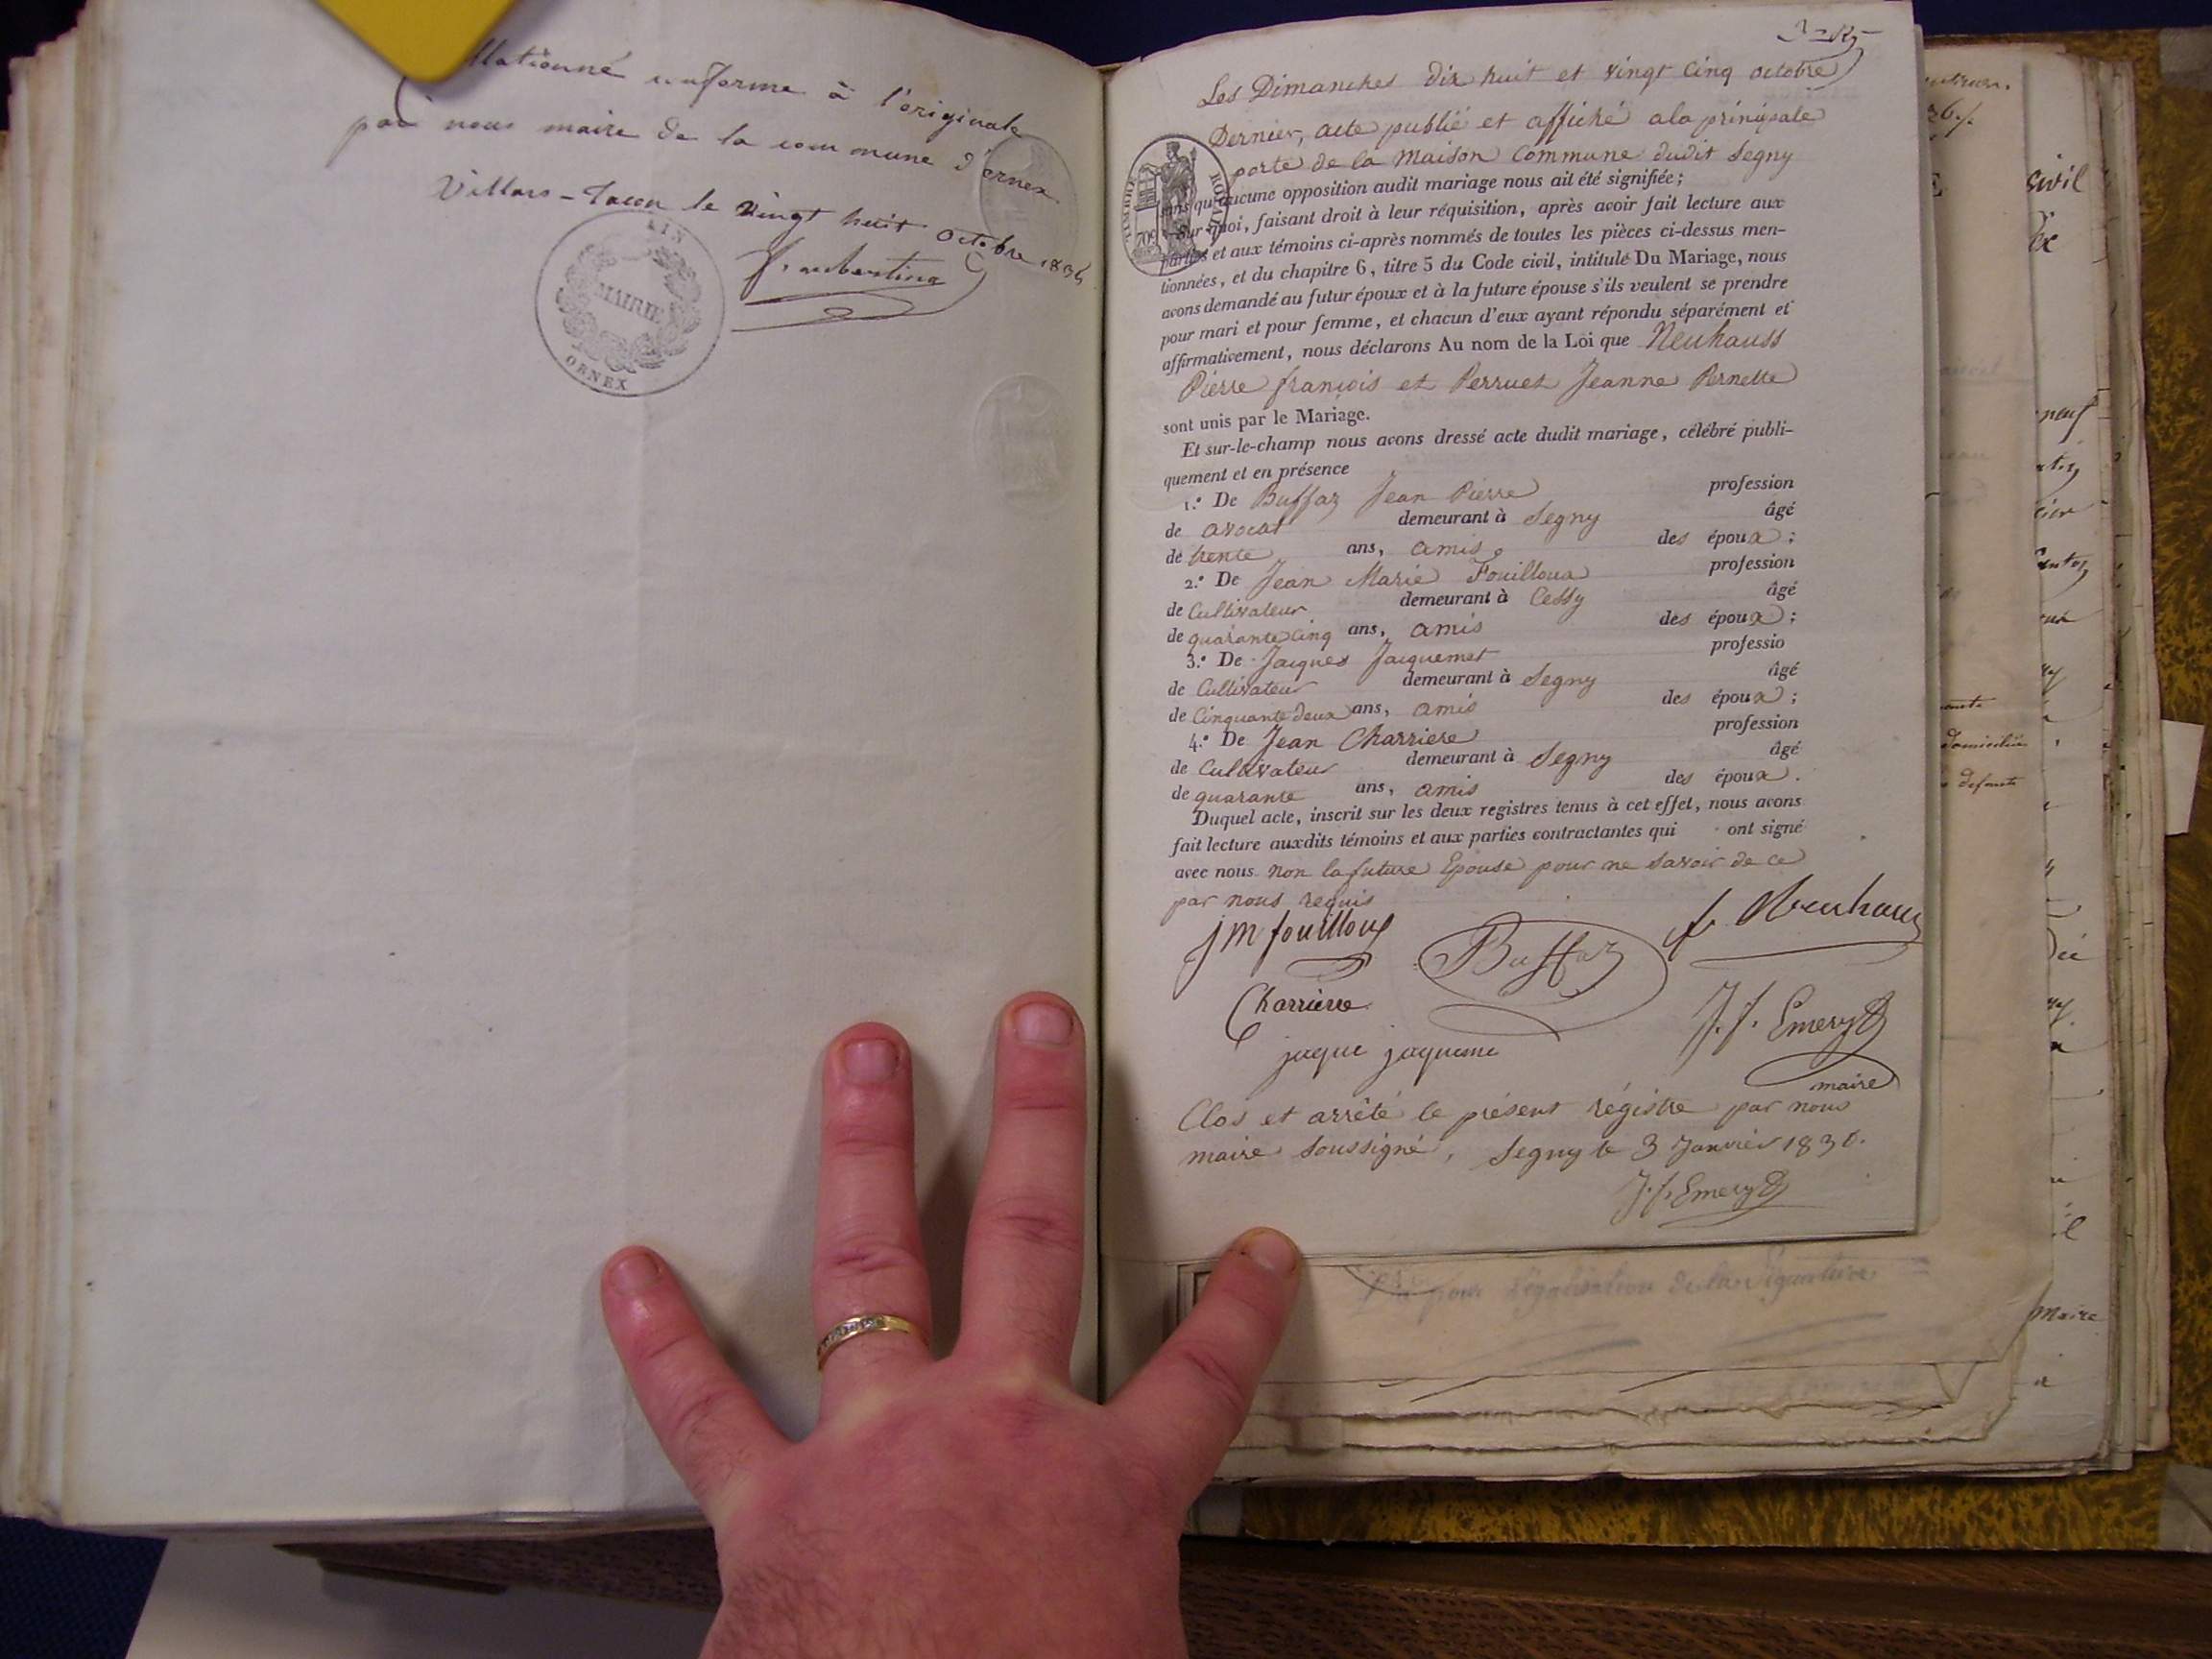 llationné conforme à l'originale
par nous maire de la commune d'ornex
le vingt huit octobre
AIN
MAIRIE
ORNEX
Les Dimanches dix huit et vingt cinq octobre
Dernier, acte publié et affiché a la principale
porte de la Maison Commune dudit Segny
sans qu'aucune opposition audit mariage nous ait été signifiée;
Sur quoi, faisant droit à leur réquisition, après avoir fait lecture aux
parties et aux témoins ci-après nommés de toutes les pièces ci-dessus men-
tionnées, et du chapitre 6, titre 5 du Code civil, intitulé Du Mariage, nous
avons demandé au futur époux et à la future épouse s'ils veulent se prendre
pour mari et pour femme, et chacun d'eux ayant répondu séparément et
affirmativement, nous déclarons Au nom de la Loi que Neuhauss
Pierre françois et Perruet Jeanne Pernette
sont unis par le Mariage.
Et sur-le-champ nous avons dressé acte dudit mariage, célébré publi-
quement et en présence
1.° De Buffaz Jean Pierre profession
de avocat demeurant à Segny âgé
de trente ans, amis des époux;
2.° De Jean Marie Fouilloux profession
de Cultivateur demeurant à Cessy âgé
de quarante cinq ans, amis des époux;
3.° De Jacques Jacquemet professio
de Cultivateur demeurant à Segny âgé
de Cinquante deux ans, amis des époux;
4.° De Jean Charriere profession
de Cultivateur demeurant à Segny âgé
de quarante ans, amis des époux.
Duquel acte, inscrit sur les deux registres tenus à cet effet, nous avons
fait lecture auxdits témoins et aux parties contractantes qui ont signé
avec nous non la future Epouse pour ne savoir de ce
par nous requis
jm fouilloux Buffaz f Neuhauss
Charriere J. f. Emery
jaque jaqueme maire
Clos et arrêté le présent régistre par nous
maire soussigné, Segny le 3 Janvier 1836.
J. f. Emery
pour légalisation de la signature
maire